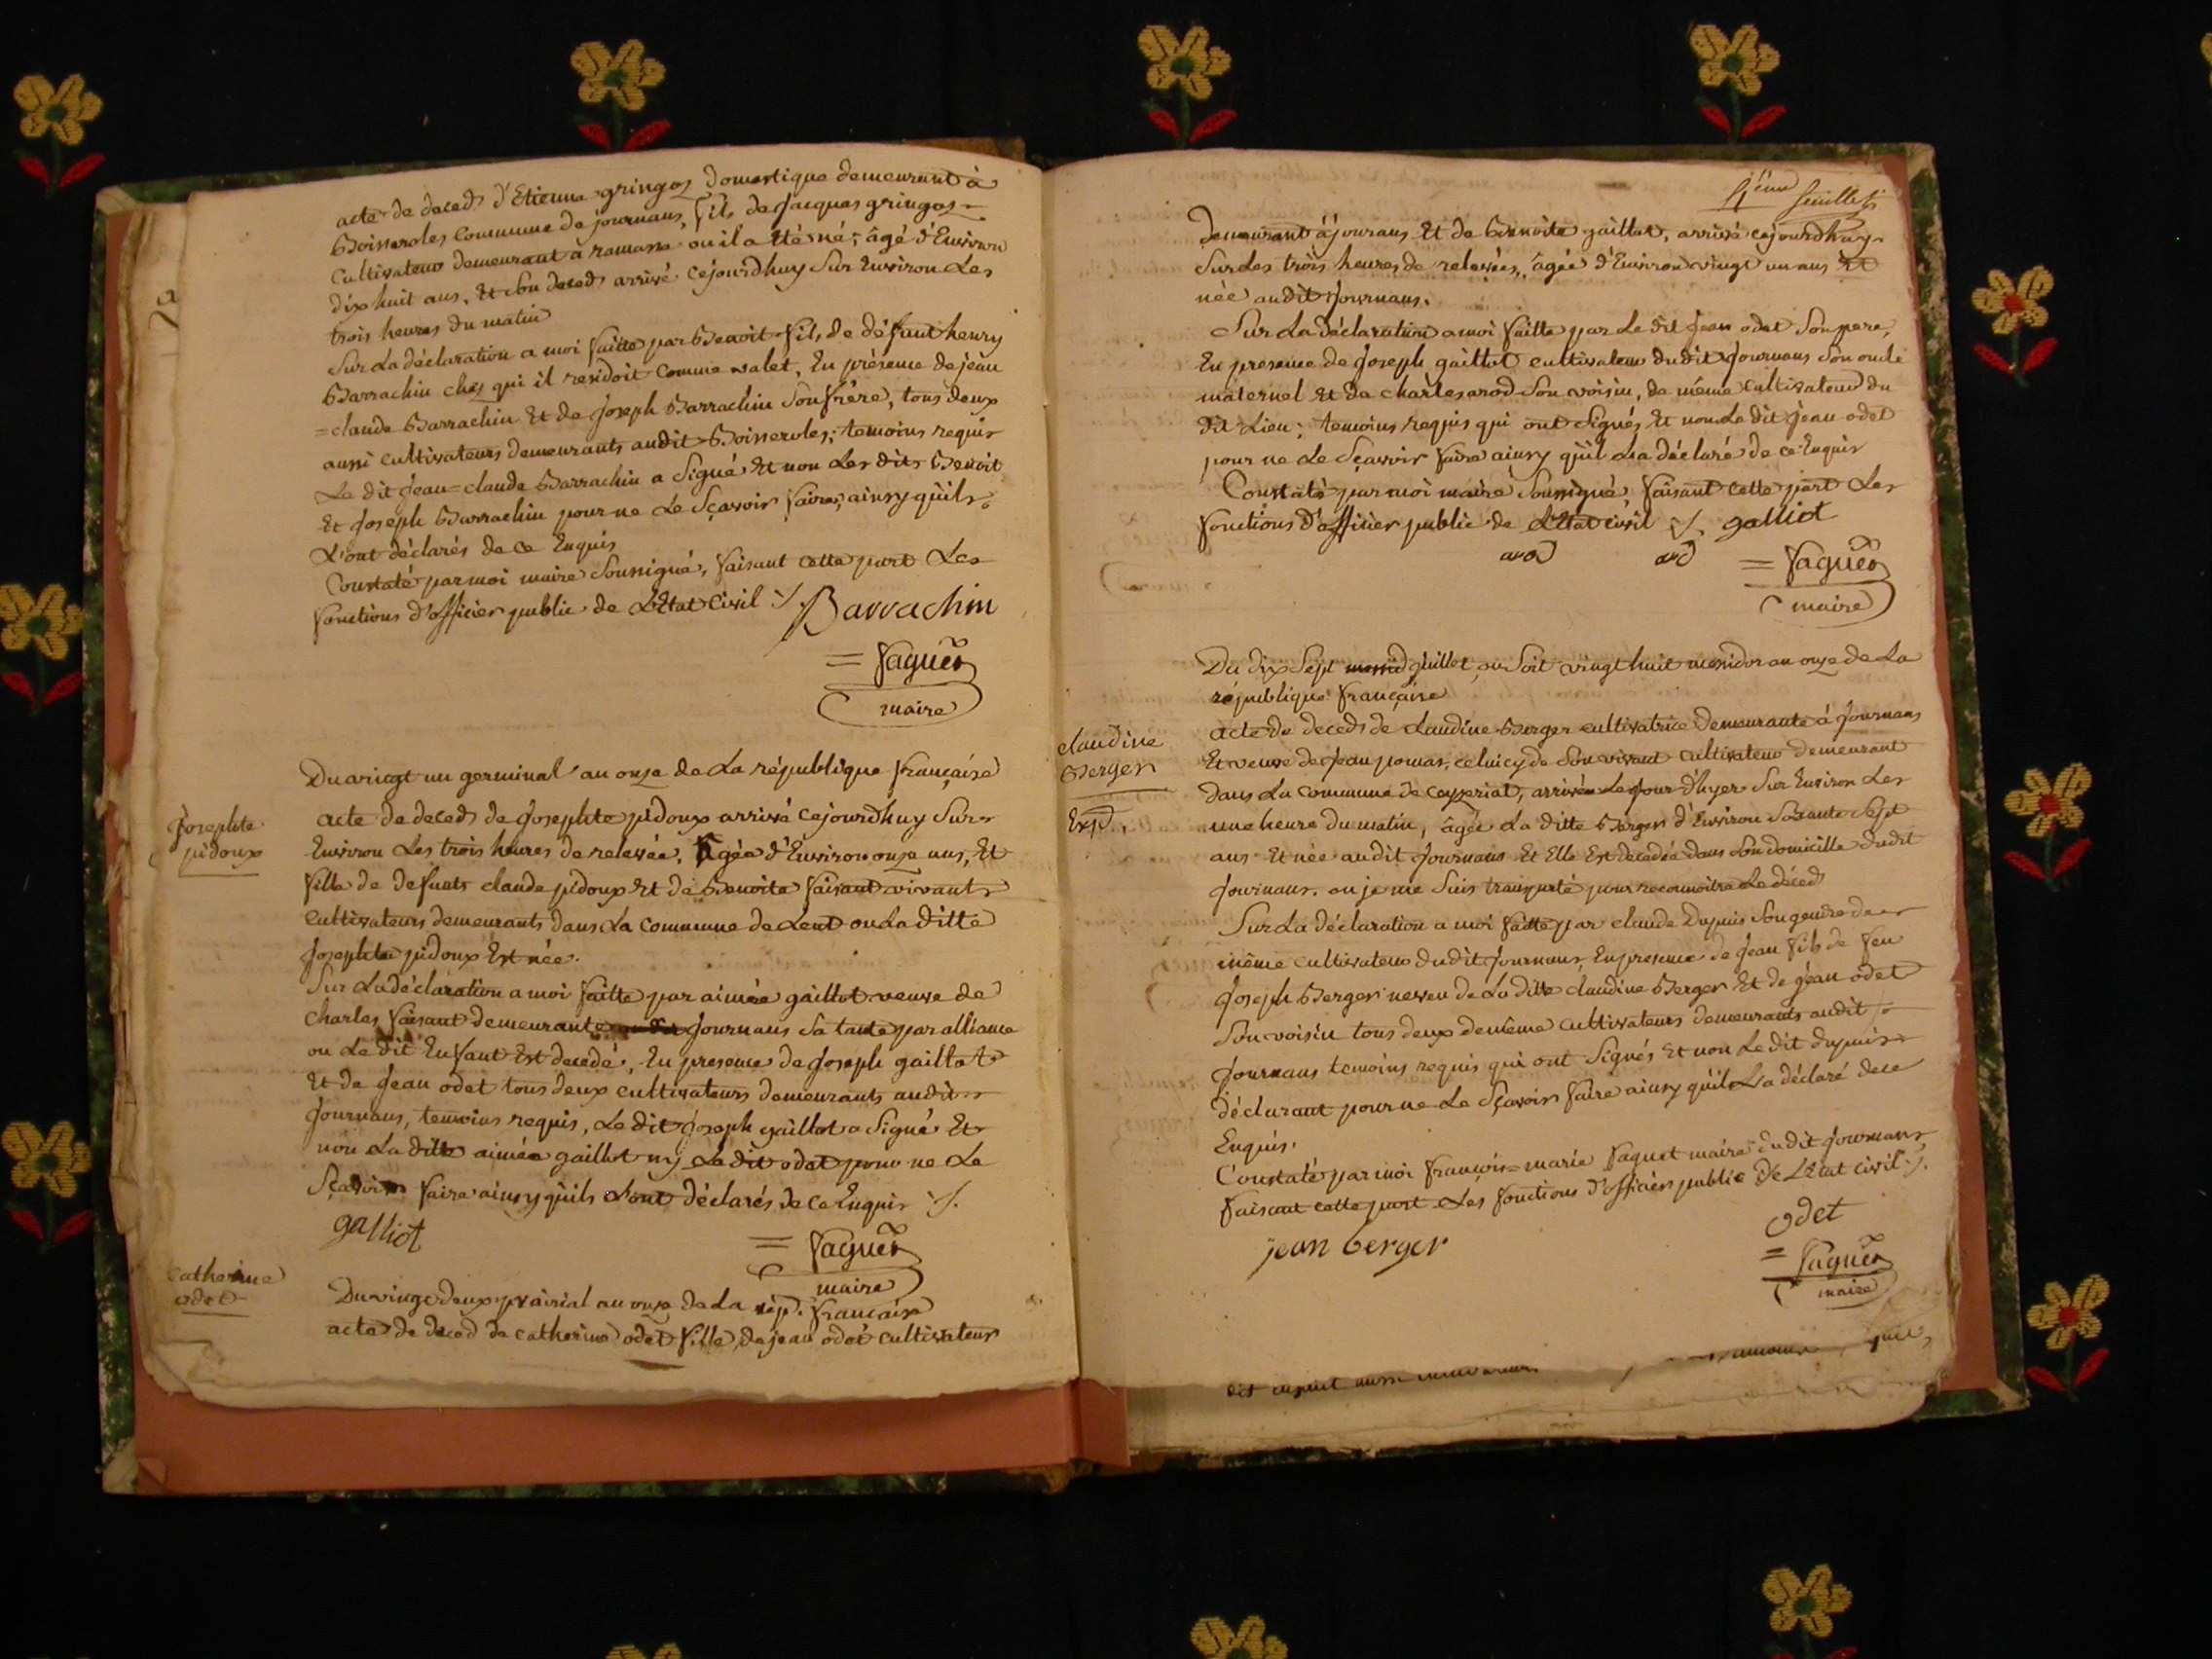 acte de deced d'Etienne gringos domestique demeurant à
Boisseroles commune de journans, fils de Jacques gringos
cultivateur demeurant a ramasse ou il a été né; âgé d'Environ
dix huit ans, Et Son deced arrivé cejourdhuy Sur Environ Les
trois heures du matin
Sur La déclaration a moi faitte par Benoit fils de défunt henry
Barrachin chez qui il residoit comme valet, En présence de jean
=claude Barrachin Et de Joseph Barrachin Son frère, tous deux
aussi cultivateurs demeurants audit Boisseroles; temoins requis
Le dit Jean=claude Barrachin a Signé Et non Les dits Benoit
Et Joseph Barrachin pour ne Le Sçavoir faire, ainsy qu'ils
L'ont déclarés de ce Enquis
Constaté par moi maire Soussigné, faisant cette part Les
fonctions d'officier public de L'Etat Civil ./. Barrachin
= faguet
maire
Du vingt un germinal an onze de La république française
Josephte
pidoux
acte de deced de Josephte pidoux arrivé cejourdhuy Sur
Environ Les trois heures de relevée, âgée d'Environ onze ans, Et
fille de defunts claude pidoux Et de Benoite faisant vivants
cultivateurs demeurants dans La commune de Lent ou La ditte
Josephte pidoux Est née.
Sur La déclaration a moi faitte par aimée gaillot veuve de
charles faisant demeurante Journans Sa tante par alliance
ou Le dit Enfant Est decedé, En presence de Joseph gaillot
Et de Jean odet tous deux cultivateurs demeurants audit
Journans, temoins requis, Le dit Joseph gaillot a Signé Et
non La ditte aimée gaillot ny Le dit odet pour ne Le
Sçavoir faire ainsy qu'ils L'ont déclarés de ce Enquis ./.
galliot
= faguet
maire
catherine
odet
Du vingt deux prairial an onze de La rép. française
acte de deced de catherine odet fille de jean odet cultivateur
4ième feuillet
Demeurant à journans Et de Benoite gaillot, arrivé cejourdhuy
Sur Les trois heures de relevées, âgée d'Environ vingt un ans Et
née audit Journans.
Sur La déclaration a moi faitte par Le dit Jean odet Son pere,
En presence de Joseph gaillot cultivateur dudit Journans Son oncle
maternel Et de charles arod Son voisin, de même cultivateur du
dit Lieu; temoins requis qui ont Signés Et non Le dit Jean odet
pour ne Le Sçavoir faire ainsy qu'il L'a déclaré de ce Enquis
Constaté par moi maire Soussigné, faisant cette part Les
fonctions d'officier public de L'Etat civil ./. galliot
arod
= faguet
maire
Du dix Sept messid juillet, ou Soit vingt huit messidor an onze de La
république française
claudine
Berger
Exp.
acte de deced de claudine Berger cultivatrice demeurante à Journans
Et veuve de Jean pomar, celuicy de Son vivant cultivateur demeurant
dans La commune de ceyzeriat, arrivée Le jour d'hyer Sur Environ Les
une heure du matin, âgée La ditte Berger d'Environ Soixante Sept
ans Et née audit Journans Et Elle Est decedée dans Son domicille dudit
Journans. ou je me Suis transporté pour reconnoitre Le déced
Sur La déclaration a moi faitte par claude Dupuis Son gendre de
même cultivateur dudit Journans, En presence de Jean fils de feu
Joseph Berger neveu de La ditte claudine Berger Et de Jean odet
Son voisin tous deux de même cultivateurs demeurants audit
Journans temoins requis qui ont Signés Et non Le dit Dupuis
déclarant pour ne Le Sçavoir faire ainsy qu'il L'a déclaré de ce
Enquis.
Constaté par moi françois=marie faguet maire dudit Journans,
faisant cette part Les fonctions d'officier public de L'Etat civil ./.
odet
jean berger
= faguet
maire